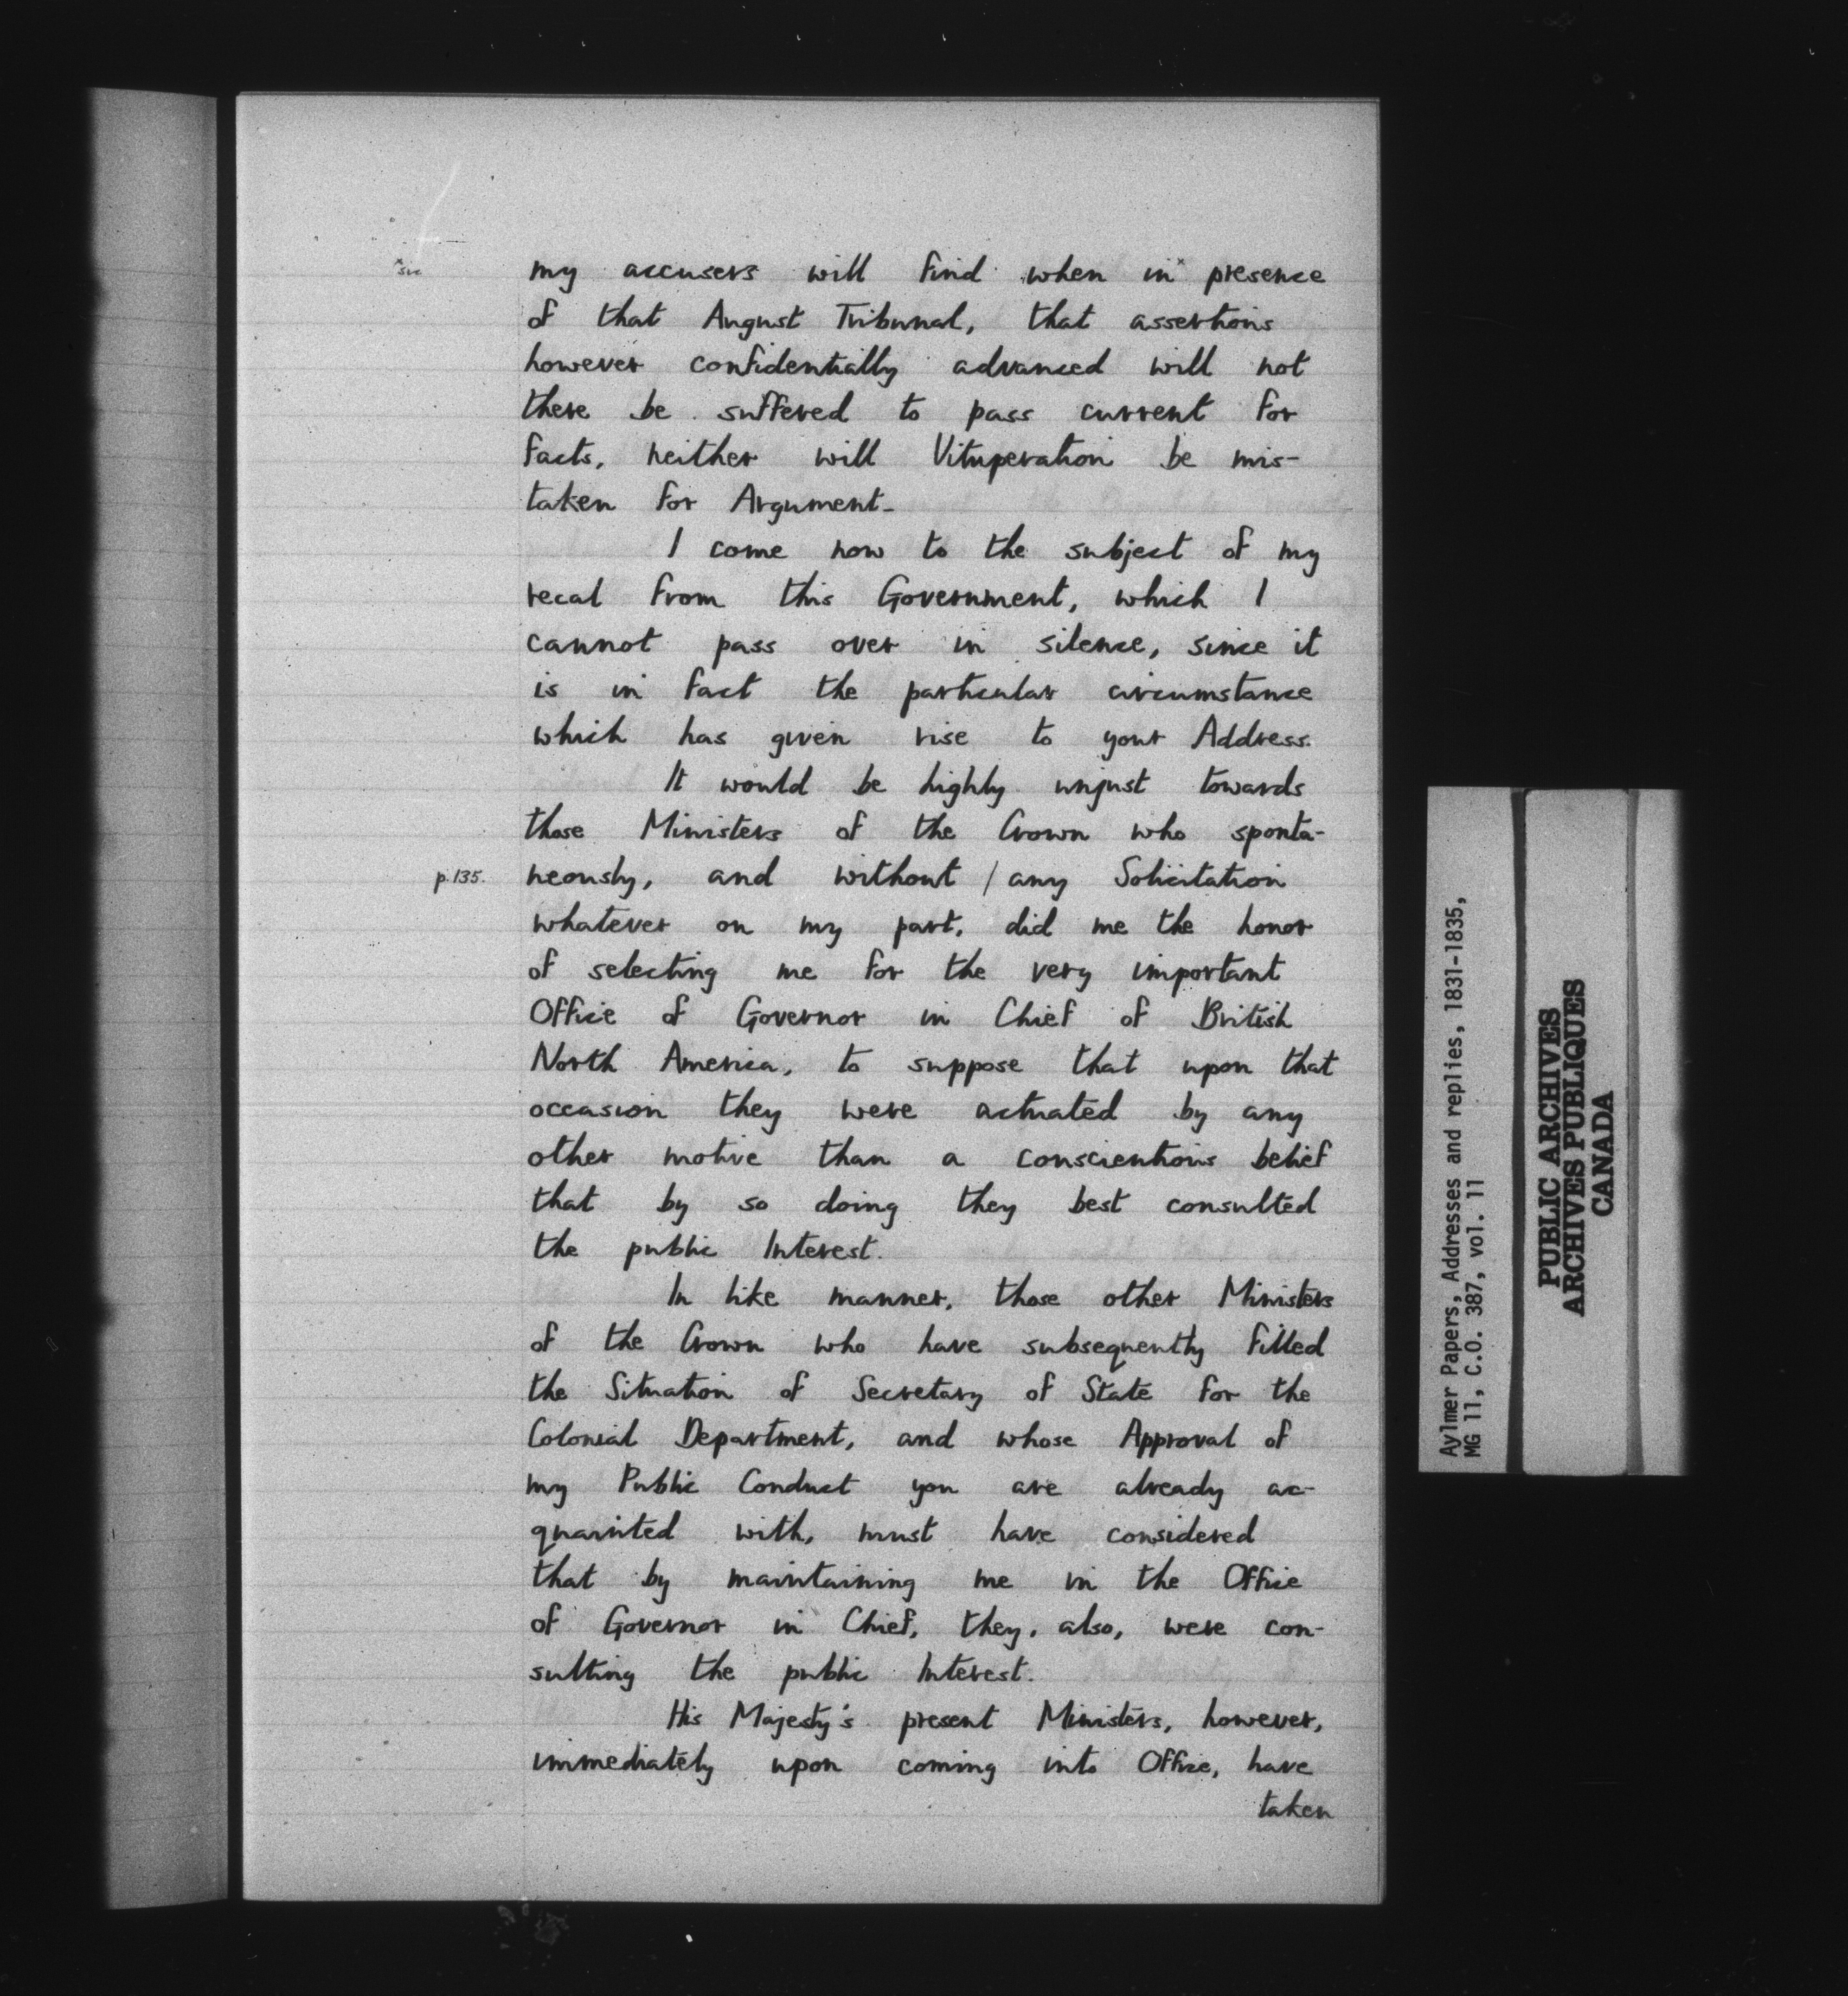 xsic
my accusers will find when inx presence
of that August Tribunal, that assertions
however confidentially advanced will not
there be suffered to pass current for
facts, neither will Vituperation be mis-
taken for Argument-
I come now to the subject of my
recal from this Government, which I
cannot pass over in silence, since it
is in fact the particular circumstance
which has given rise to your Address.
It would be highly unjust towards
those Ministers of the Crown who sponta-
p.135.
neously, and without / any Solicitation
whatever on my part, did me the honor
of selecting me for the very important
Office of Governor in Chief of British
North America, to suppose that upon that
occasion they were actuated by any
other motive than a conscientious belief
that by so doing they best consulted
the public Interest.
In like manner, those other Ministers
of the Crown who have subsequently filled
the Situation of Secretary of State for the
Colonial Department, and whose Approval of
my Public Conduct you are already ac-
quainted with, must have considered
that by maintaining me in the Office
of Governor in Chief, they, also, were con-
sulting the public Interest.
His Majesty's present Ministers, however,
immediately upon coming into Office, have
taken
Aylmer Papers, Addresses and replies, 1831-1835,
MG 11, C.O. 387, vol. 11
PUBLIC ARCHIVES
ARCHIVES PUBLIQUES
CANADA